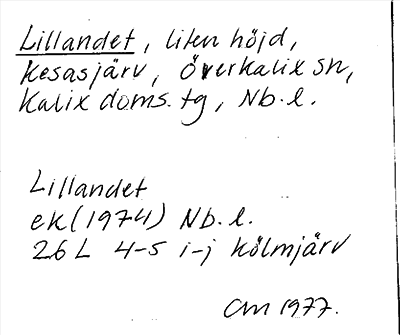 Lillandet, liten höjd,
Kesasjärv, Överkalix sn,
Kalix doms. tg, Nb. l.
Lillandet
ek (1974) Nb. l.
26 L 4-5 i-j Kölmjärv
CM 1977.